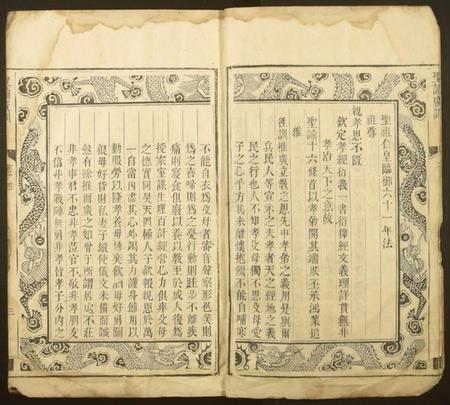 聖祖仁皇帝臨御六十一年法
祖尊
親孝思不匱
欽定孝經衍義一書衍釋經文義理詳貫無非
孝治天下之意故
聖諭十六條首以孝弟開其端朕丕承鴻業追
維
往訓推廣立教之思先申孝弟之義用是與爾
兵民人等宣示之夫孝者天之經地之義
民之行也人不知孝父母獨不思父母愛
子之心乎方其未離懷抱饑不能自哺寒
不能自衣為父母者審音聲察形色笑則
為之喜啼則為之憂行動則跬步不離疾
痛則寢食俱廢以養以教至於成人復為
授家室謀生理百計經營心力俱瘁父母
之德實同昊天罔極人子欲報親恩於萬
一自當內盡其心外竭其力謹身節用以
勤服勞以隆孝養毋博弈飲酒毋好勇鬭
狠毋好貨財私妻子縱使儀文未備而誠
慤有餘推而廣之如曾子所謂居處不莊
非孝事君不忠非孝蒞官不敬非孝朋友
不信非孝戰陣無勇非孝皆孝子分內之